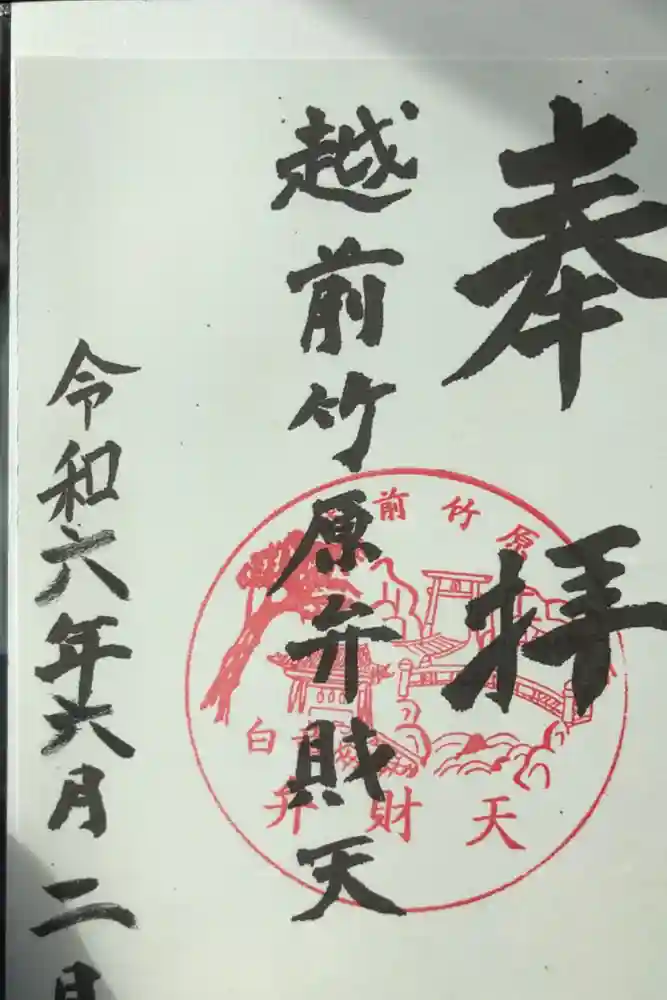 奉拝
越前竹原弁財天
令和六年六月二日
前竹原
白
弁財天